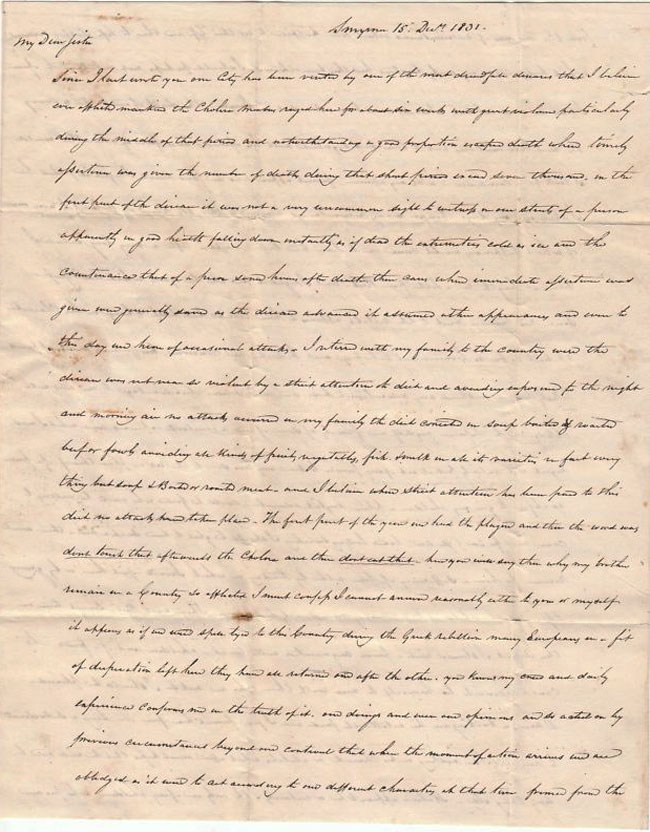 Smyrna 15 Decr. 1831.
My Dear Sister
Since I last wrote you our City has been visited by one of the most dreadfull diseases that I believe
ever afflicted mankind the Cholera Morbus raged here for about six weeks with great violence particularly
during the middle of that period and notwithstanding a good proportion escaped death where timely
assistance was given the number of deaths during that short period exceed seven thousand, in the
first part of the disease it was not a very uncommon sight to witness in our streets of a person
apparently in good health falling down instantly as if dead the extremities cold as ice and the
Countenance that of a person some hours after death these cases when immediate assistance was
given were generally saved as the disease advanced it assumed other appearances and even to
this day we hear of occasional attacks. I retired with my family to the country were the
disease was not near so violent by a strict attention to diet and avoiding exposure to the night
and morning air no attacks occurred in my family the diet consisted in soup boiled or roasted
beef or fowls avoiding all kinds of fruits, vegetables, fish & milk in all its varieties in fact every
thing but soup & Boiled or roasted meat - and I believe when strict attention has been paid to this
diet no attacks have taken place. The first part of the year we had the plague and then the word was
dont touch that afterwards the Cholera and then dont eat that. how you will say then why my brother
remain in a Country so afflicted I must confess I cannot answer reasonably either to you or myself
it appears as if we were spell tyed to this Country during the Greek rebellion many Europeans in a fit
of desperation left here they have all returned one after the other. you know my and daily
experience confirms me in the truth of it. our doings and even our opinions are so acted on by
previous circumstances beyond our controul that when the moment of action arrives we are
obliedged as it were to act according to our different characters at that time formed from the